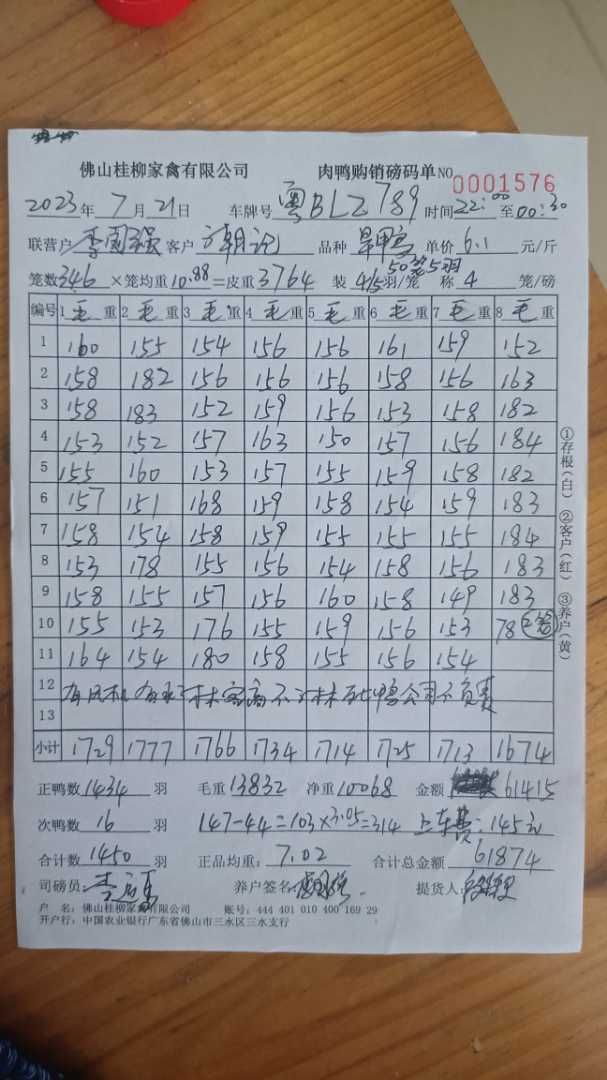 佛山桂柳家禽有限公司 肉鸭购销磅码单 NO 0001576
2023年 7月 21日 车牌号 粤BLZ789 时间 22:00 至 00:30
联营户 李国强 客户 潮记 品种 单价 6.1 元/斤
50笼5羽
笼数 346 ×笼均重 10.88 =皮重 3764 装 4/5 羽/笼 称 4 笼/磅
编号 1 毛 重 2 毛 重 3 毛 重 4 毛 重 5 毛 重 6 毛 重 7 毛 重 8 毛 重
1 160 155 154 156 156 161 159 152
2 158 182 156 156 156 158 156 163
3 158 183 152 159 156 153 158 182
4 153 152 157 163 150 157 156 184
5 155 160 153 157 155 159 158 182
6 157 151 168 159 158 154 159 183
7 158 154 158 159 155 155 155 184
8 153 178 155 156 154 158 156 183
9 158 155 157 156 160 158 149 183
10 155 153 176 155 159 156 153 78 2笼
11 164 154 180 158 155 156 154
12 鸭公司不负责
13
小计 1729 1777 1766 1734 1714 1725 1713 1674
正鸭数 1434 羽 毛重 13832 净重 10068 金额 61415
次鸭数 16 羽 147-44=103×3.05=314 上车费:145元
合计数 1450 羽 正品均重: 7.02 合计总金额 61874
司磅员: 养户签名 提货人:
户 名: 佛山桂柳家禽有限公司 账号: 444 401 010 400 169 29
开户行: 中国农业银行广东省佛山市三水区三水支行
①存根(白) ②客户(红) ③养户(黄)